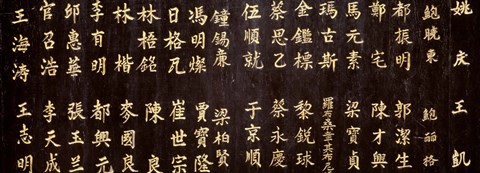 姚 王 凱
鮑曉東 鮑丽格
都振明 郭潔生
鄭宅 陳才興
馬元素 梁寶貞
瑪古斯 羅布桑雲其布尼
金鑑標 黎銳球
蔡思乙 蔡永慶
伍順就 于京順
鐘錫廉 梁柏賢
馮明燦 賈寶隆
日格瓦 崔世宗
林梧銘 陳良
林楷 麥國良
李有明 都興元
邱惠華 張玉蘭
官召浩 李天成
王海濤 王志明